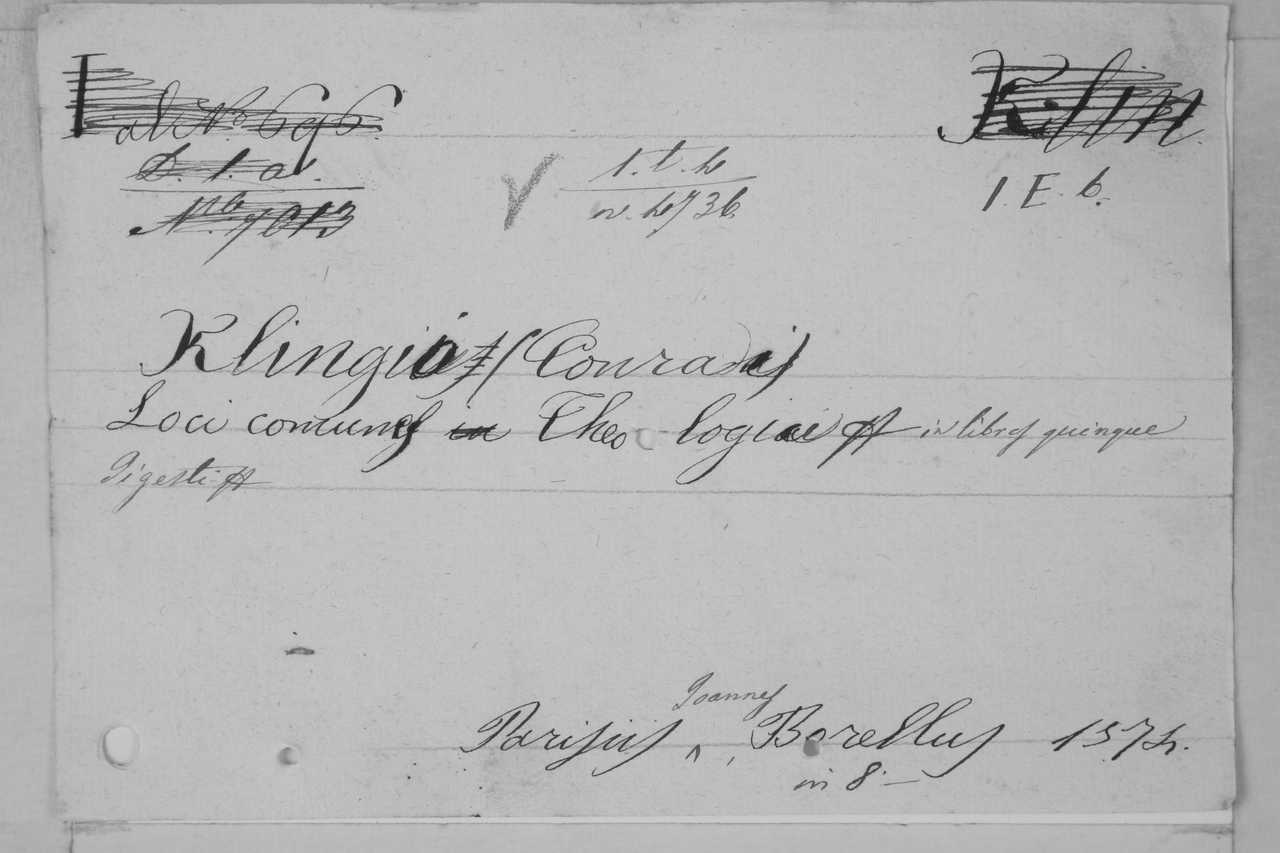 ab N° 696 Klin
D. 1. a.
N. 7013
1. t. 4
n. 4736
1. E. 6.
Klingii (Conradi)
Loci comunes in Theologici in libros quinque
digesti
Joannes
Parisiis ^, Borellus 1574.
in 8.—